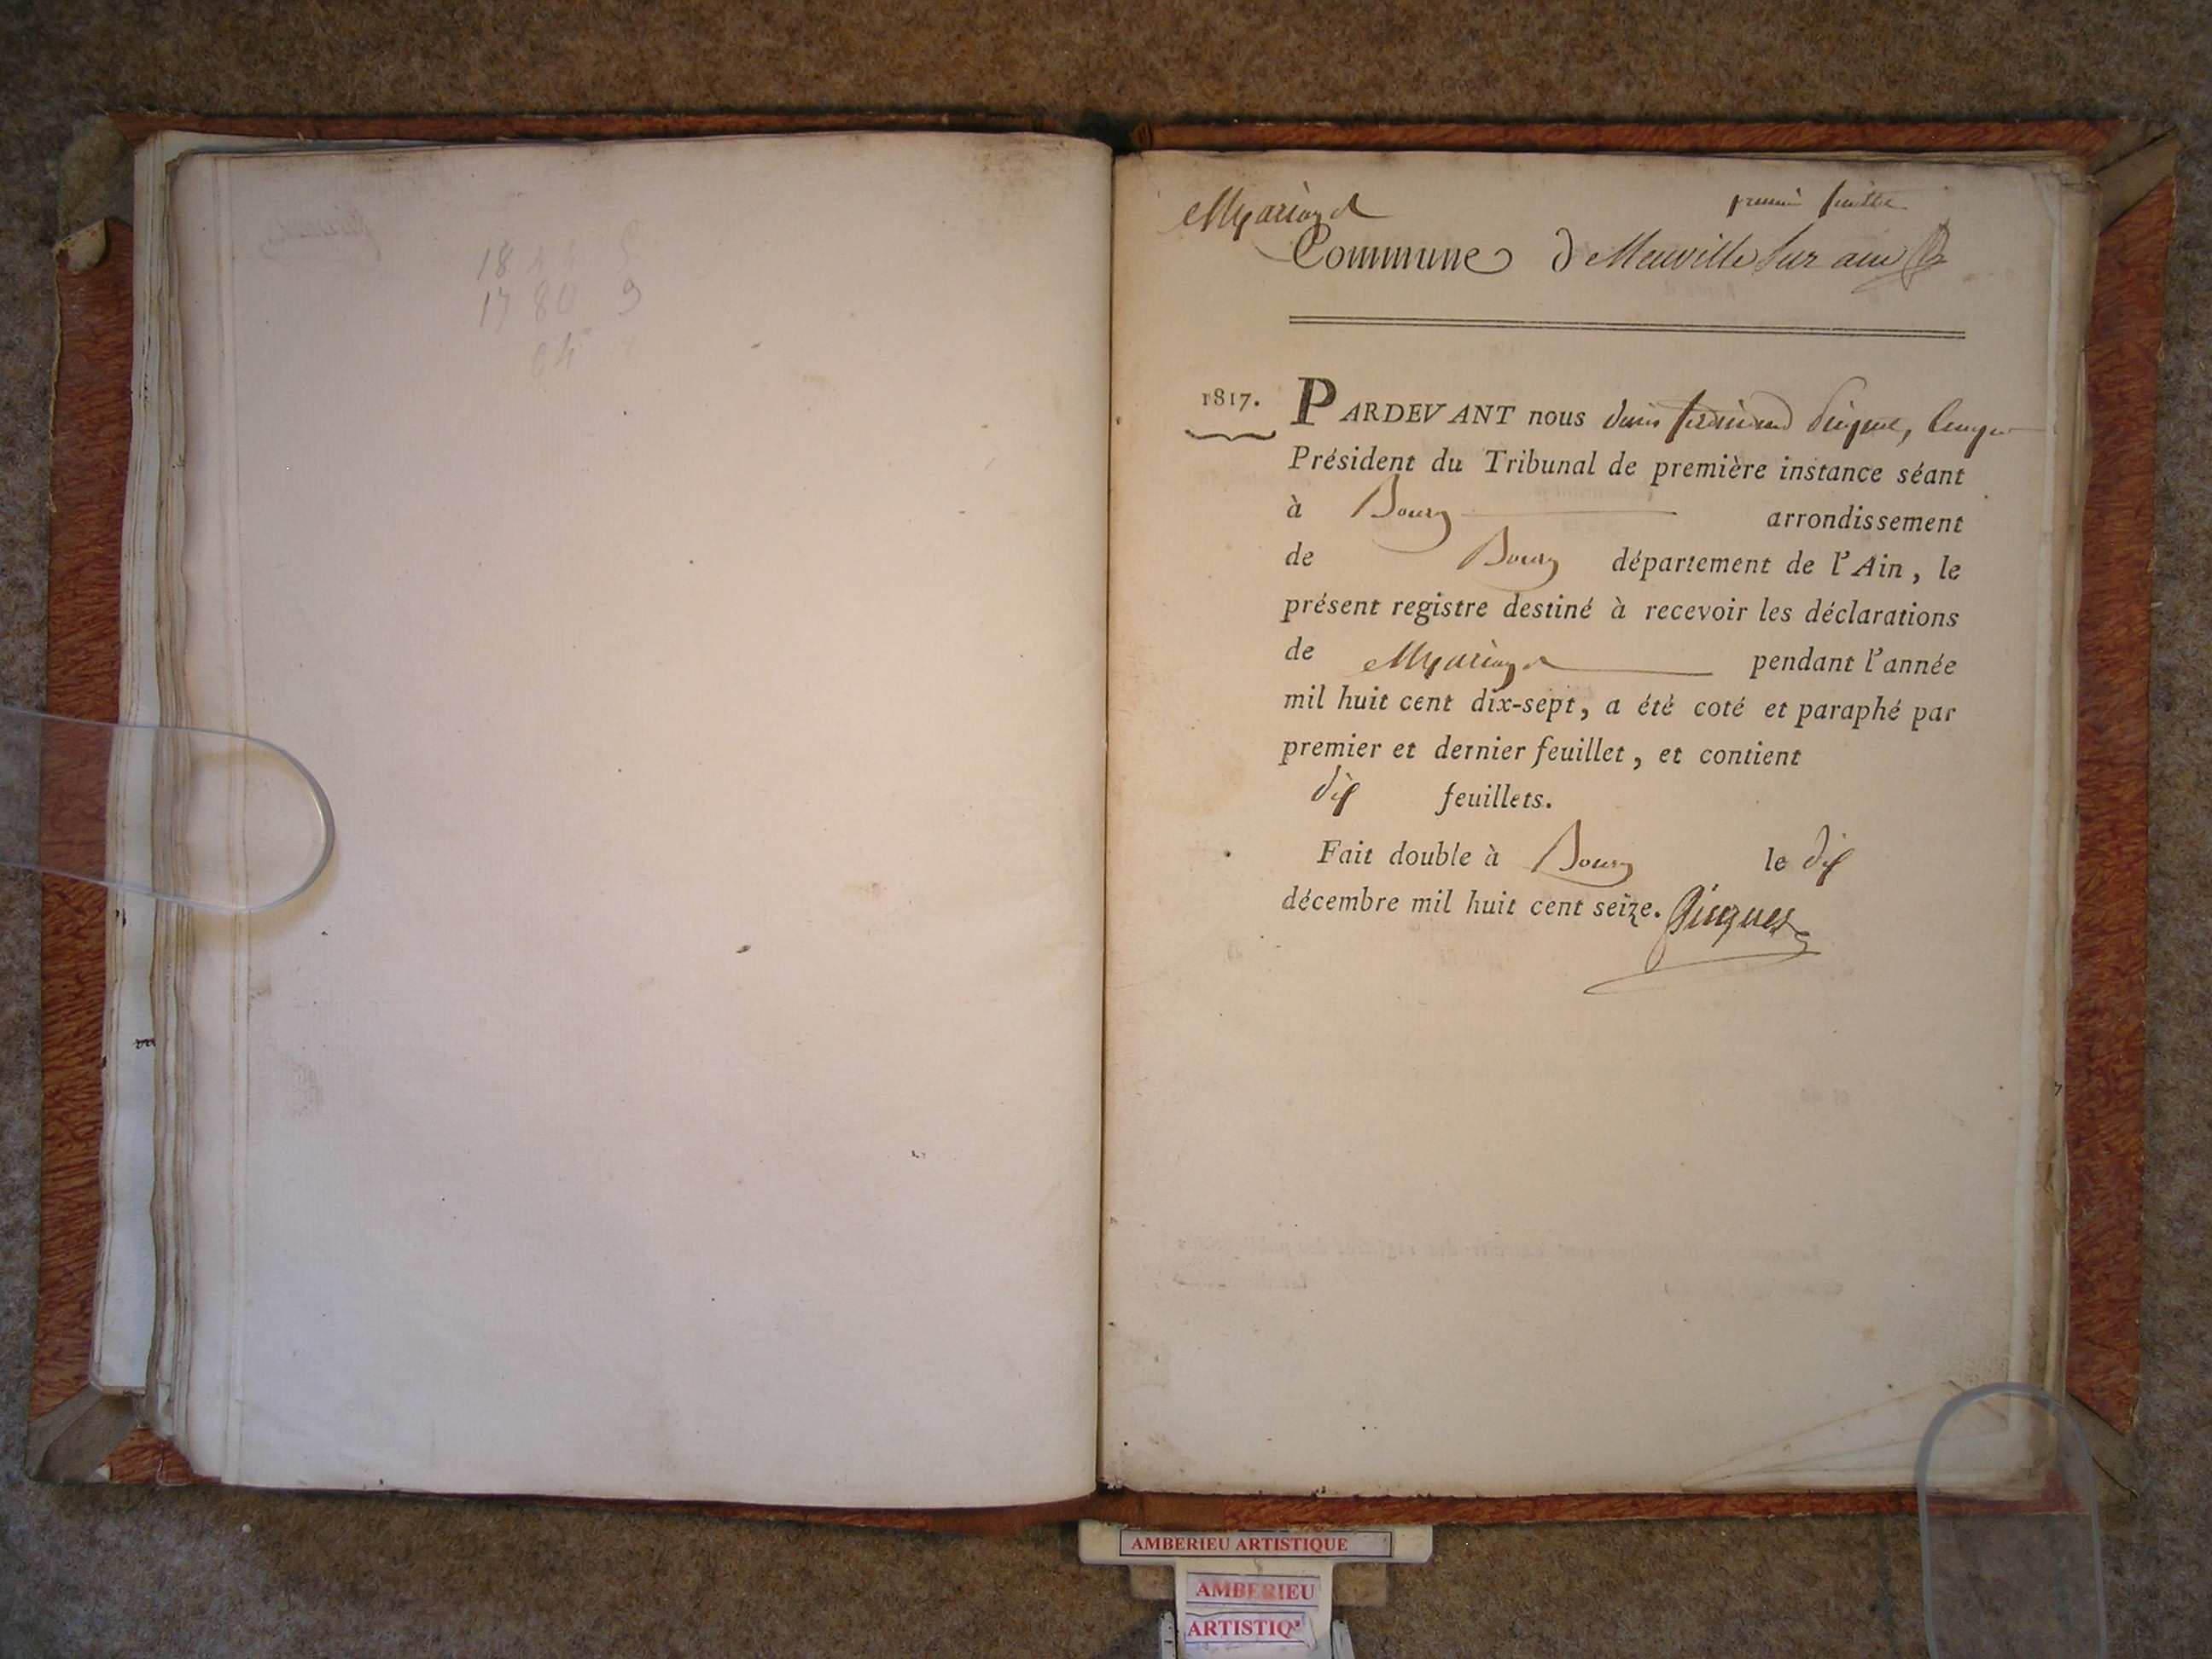 18
1780 9
Mariage
premier feuillet
Commune de Neuville sur ain
1817. PARDEVANT nous
Président du Tribunal de première instance séant
à Bourg arrondissement
de Bourg département de l'Ain, le
présent registre destiné à recevoir les déclarations
de Mariage pendant l'année
mil huit cent dix-sept, a été coté et paraphé par
premier et dernier feuillet, et contient
dix feuillets.
Fait double à Bourg le dix
décembre mil huit cent seize.
AMBERIEU ARTISTIQUE
AMBERIEU
ARTISTIQ